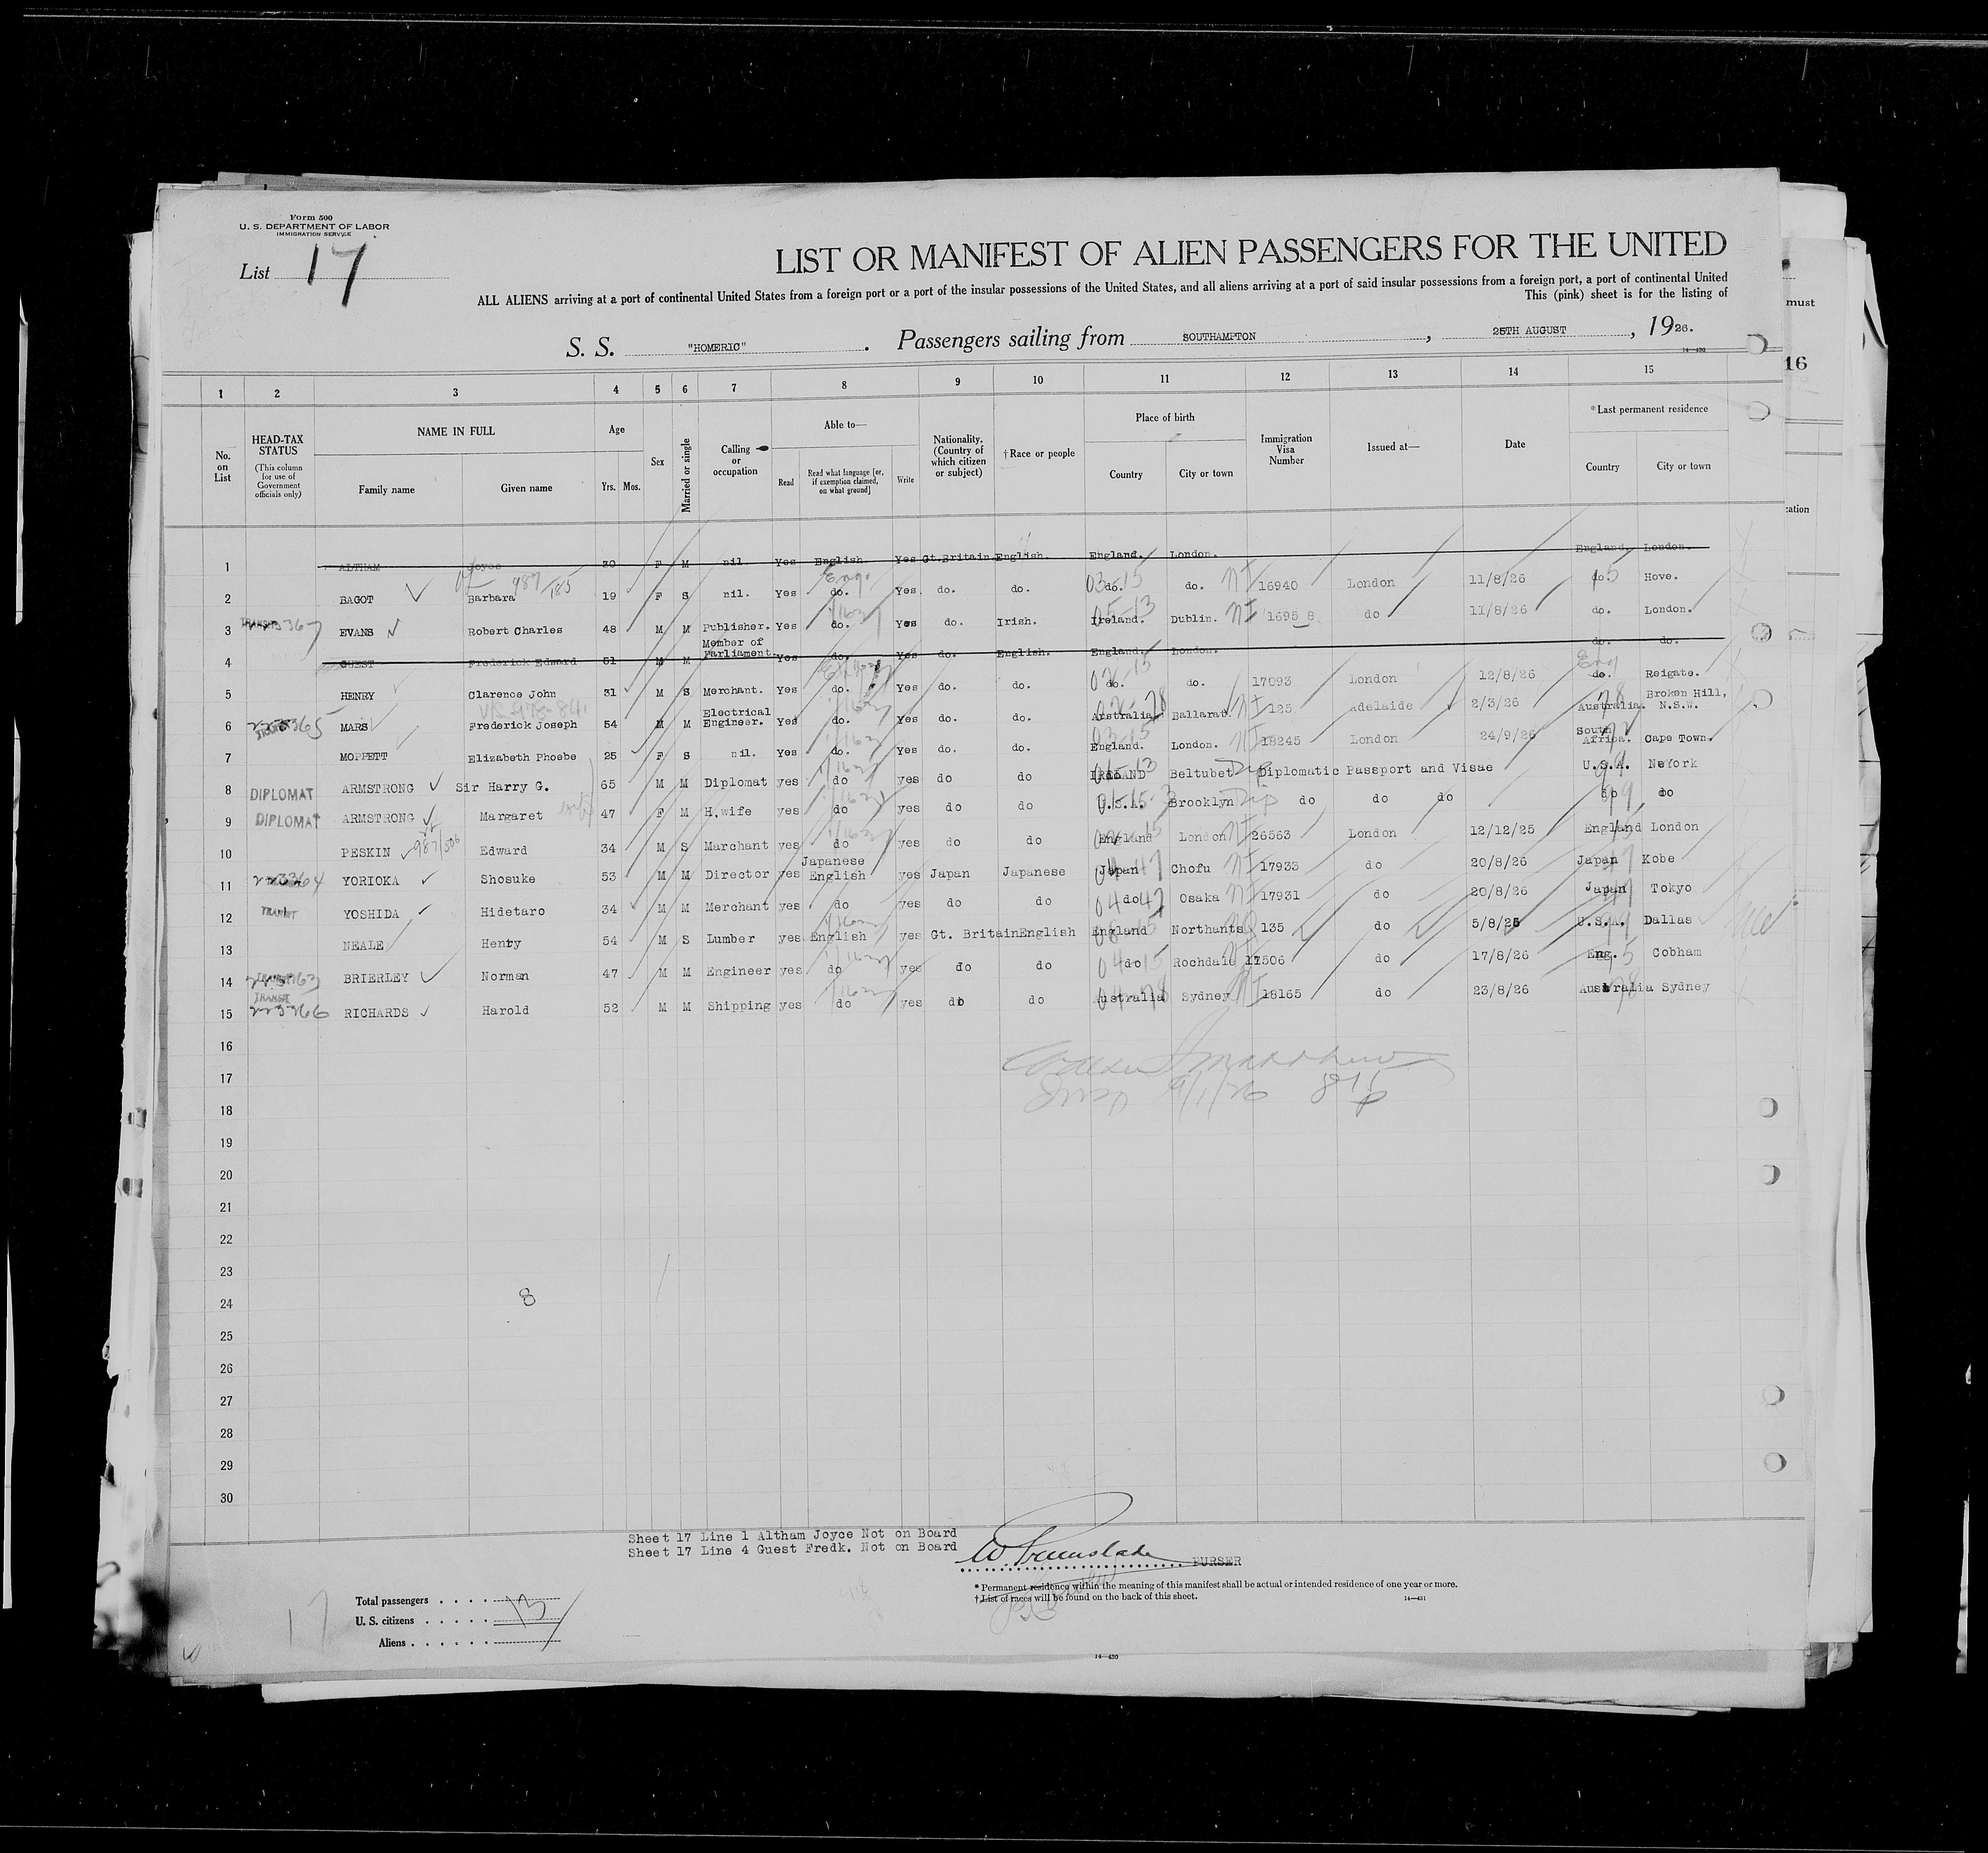 Form 500
U. S. DEPARTMENT OF LABOR
IMMIGRATION SERVICE
List 17
LIST OR MANIFEST OF ALIEN PASSENGERS FOR THE UNITED
ALL ALIENS arriving at a port of continental United States from a foreign port or a port of the insular possessions of the United States, and all aliens arriving at a port of said insular possessions from a foreign port, a port of continental United
This (pink) sheet is for the listing of
must
S. S. "HOMERIC". Passengers sailing from SOUTHAMPTON, 25TH AUGUST, 1926.
14—430
16
1 2 3 4 5 6 7 8 9 10 11 12 13 14 15
No. on List
HEAD-TAX STATUS
(This column for use of Government officials only)
NAME IN FULL
Family name Given name
Age
Yrs. Mos.
Sex
Married or single
Calling or occupation
Able to—
Read
Read what language [or, if exemption claimed, on what ground]
Write
Nationality. (Country of which citizen or subject)
†Race or people
Place of birth
Country City or town
Immigration Visa Number
Issued at—
Date
*Last permanent residence
Country City or town
1 ALTHAM Joyce 30 F M nil. Yes English. Yes Gt.Britain English. England. London. England. London.
2 BAGOT Barbara 987/185 19 F S nil. Yes do. Yes. do. do. do. do. 16940 London 11/8/26 do. Hove.
3 EVANS Robert Charles 48 M M Publisher. Yes do. Yes do. Irish. Ireland. Dublin. 16958 do 11/8/26 do. London.
4 GUEST Frederick Edward 51 M M Member of Parliament. Yes do. Yes do. English. England. London. do. do.
5 HENRY Clarence John 31 M S Merchant. Yes do. Yes do. do. do. do. 17093 London 12/8/26 do. Eng Reigate.
6 MARS Frederick Joseph 54 M M Electrical Engineer. Yes do. Yes do. do. Australia Ballarat. 125 Adelaide 2/3/26 Australia. Broken Hill, N.S.W.
7 MOPPETT Elizabeth Phoebe 25 F S nil. Yes do. Yes do. do. England. London. 18245 London 24/9/26 South Africa. Cape Town.
8 DIPLOMAT ARMSTRONG Sir Harry G. 65 M M Diplomat yes do yes do do IRELAND Beltubet Dip Diplomatic Passport and Visae U.S.A. NeYork
9 DIPLOMAT ARMSTRONG Margaret 47 F M H,wife yes do yes do do U.S.A. Brooklyn Dip do do do do do
10 PESKIN 987/506 Edward 34 M S Marchant yes do yes do do England London 26563 London 12/12/25 England London
11 YORIOKA Shosuke 53 M M Director yes Japanese English yes Japan Japanese Japan Chofu 17933 do 20/8/26 Japan Kobe
12 TRANSIT YOSHIDA Hidetaro 34 M M Merchant yes do yes do do do Osaka 17931 do 20/8/26 Japan Tokyo
13 NEALE Henry 54 M S Lumber yes English yes Gt. Britain English England Northants 135 do 5/8/26 U.S.A. Dallas
14 TRANSIT BRIERLEY Norman 47 M M Engineer yes do yes do do do Rochdale 17506 do 17/8/26 Eng. Cobham
15 TRANSIT RICHARDS Harold 52 M M Shipping yes do yes do do Australia Sydney 18165 do 23/8/26 Australia Sydney
16
17
18
19
20
21
22
23
24 8
25
26
27
28
29
30
Sheet 17 Line 1 Altham Joyce Not on Board
Sheet 17 Line 4 Guest Fredk. Not on Board
PURSER
* Permanent residence within the meaning of this manifest shall be actual or intended residence of one year or more.
† List of races will be found on the back of this sheet.
14—431
17
Total passengers . . . . .
U. S. citizens . . . . . . 13
Aliens . . . . . . .
14—430